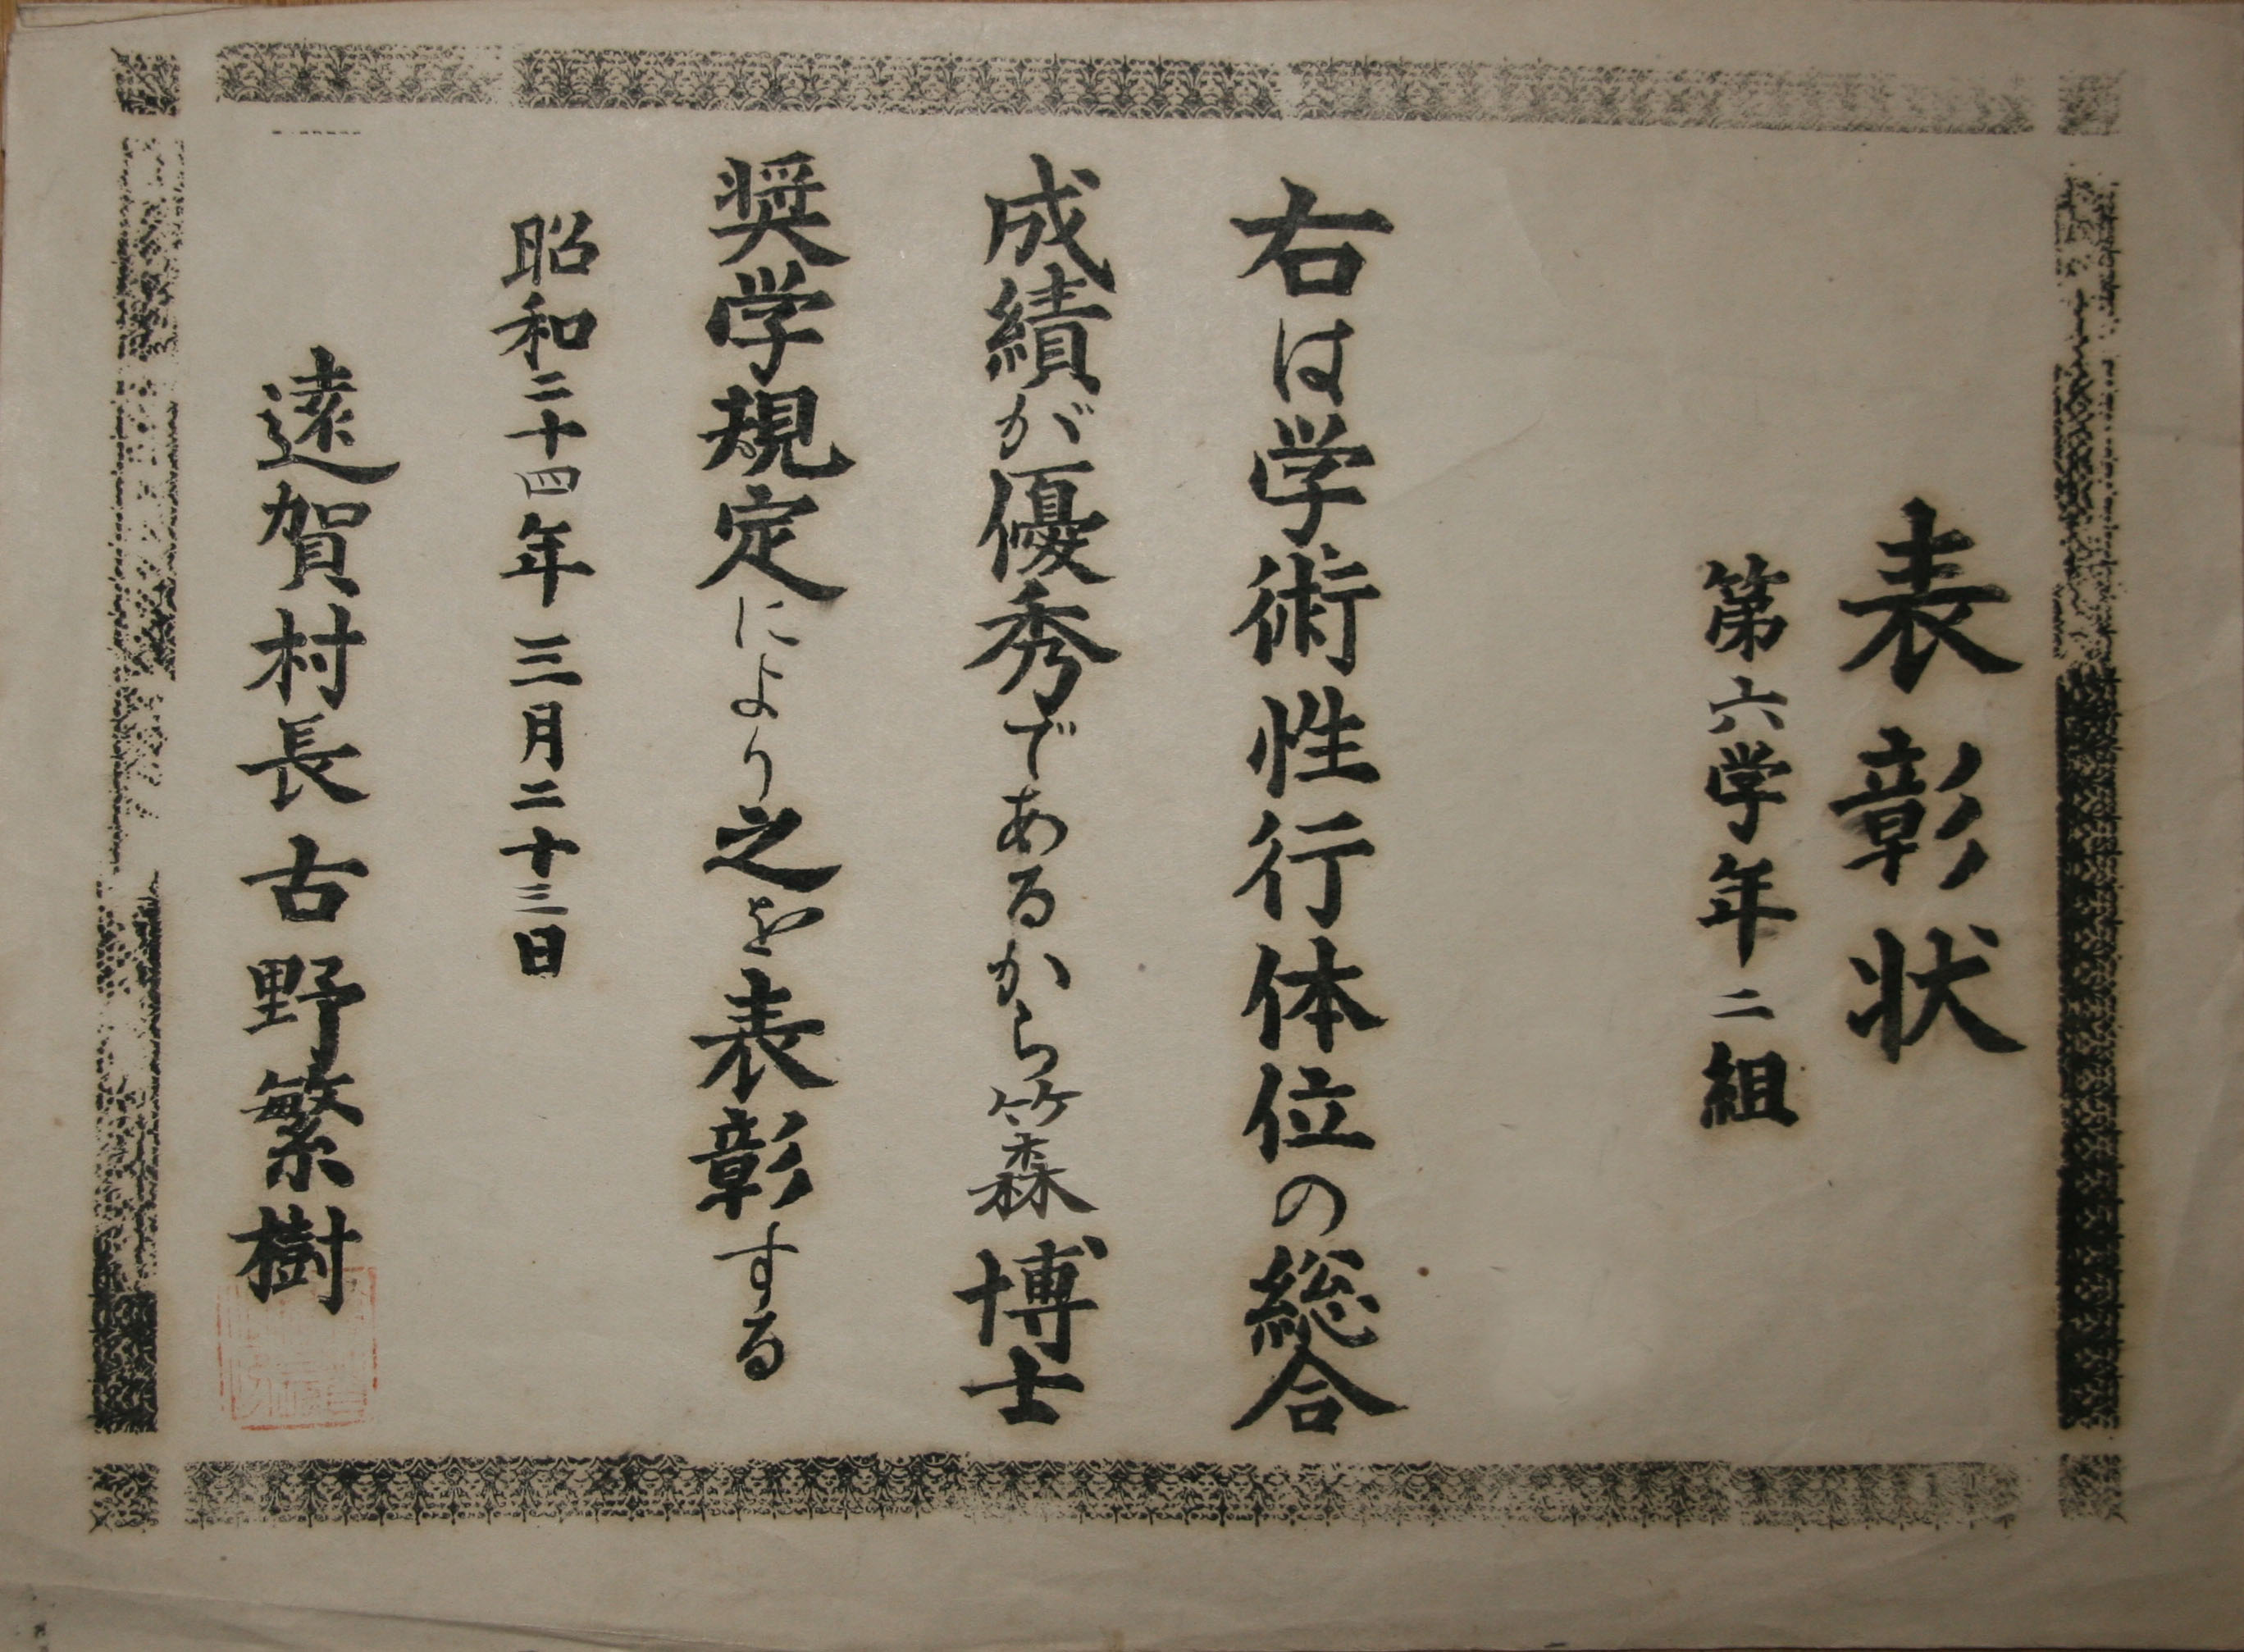 表彰状
第六学年二組
右は学術性行体位の総合
成績が優秀であるから箖博士
奨学規定により之を表彰する
昭和二十四年三月二十三日
遠賀村長古野繁樹